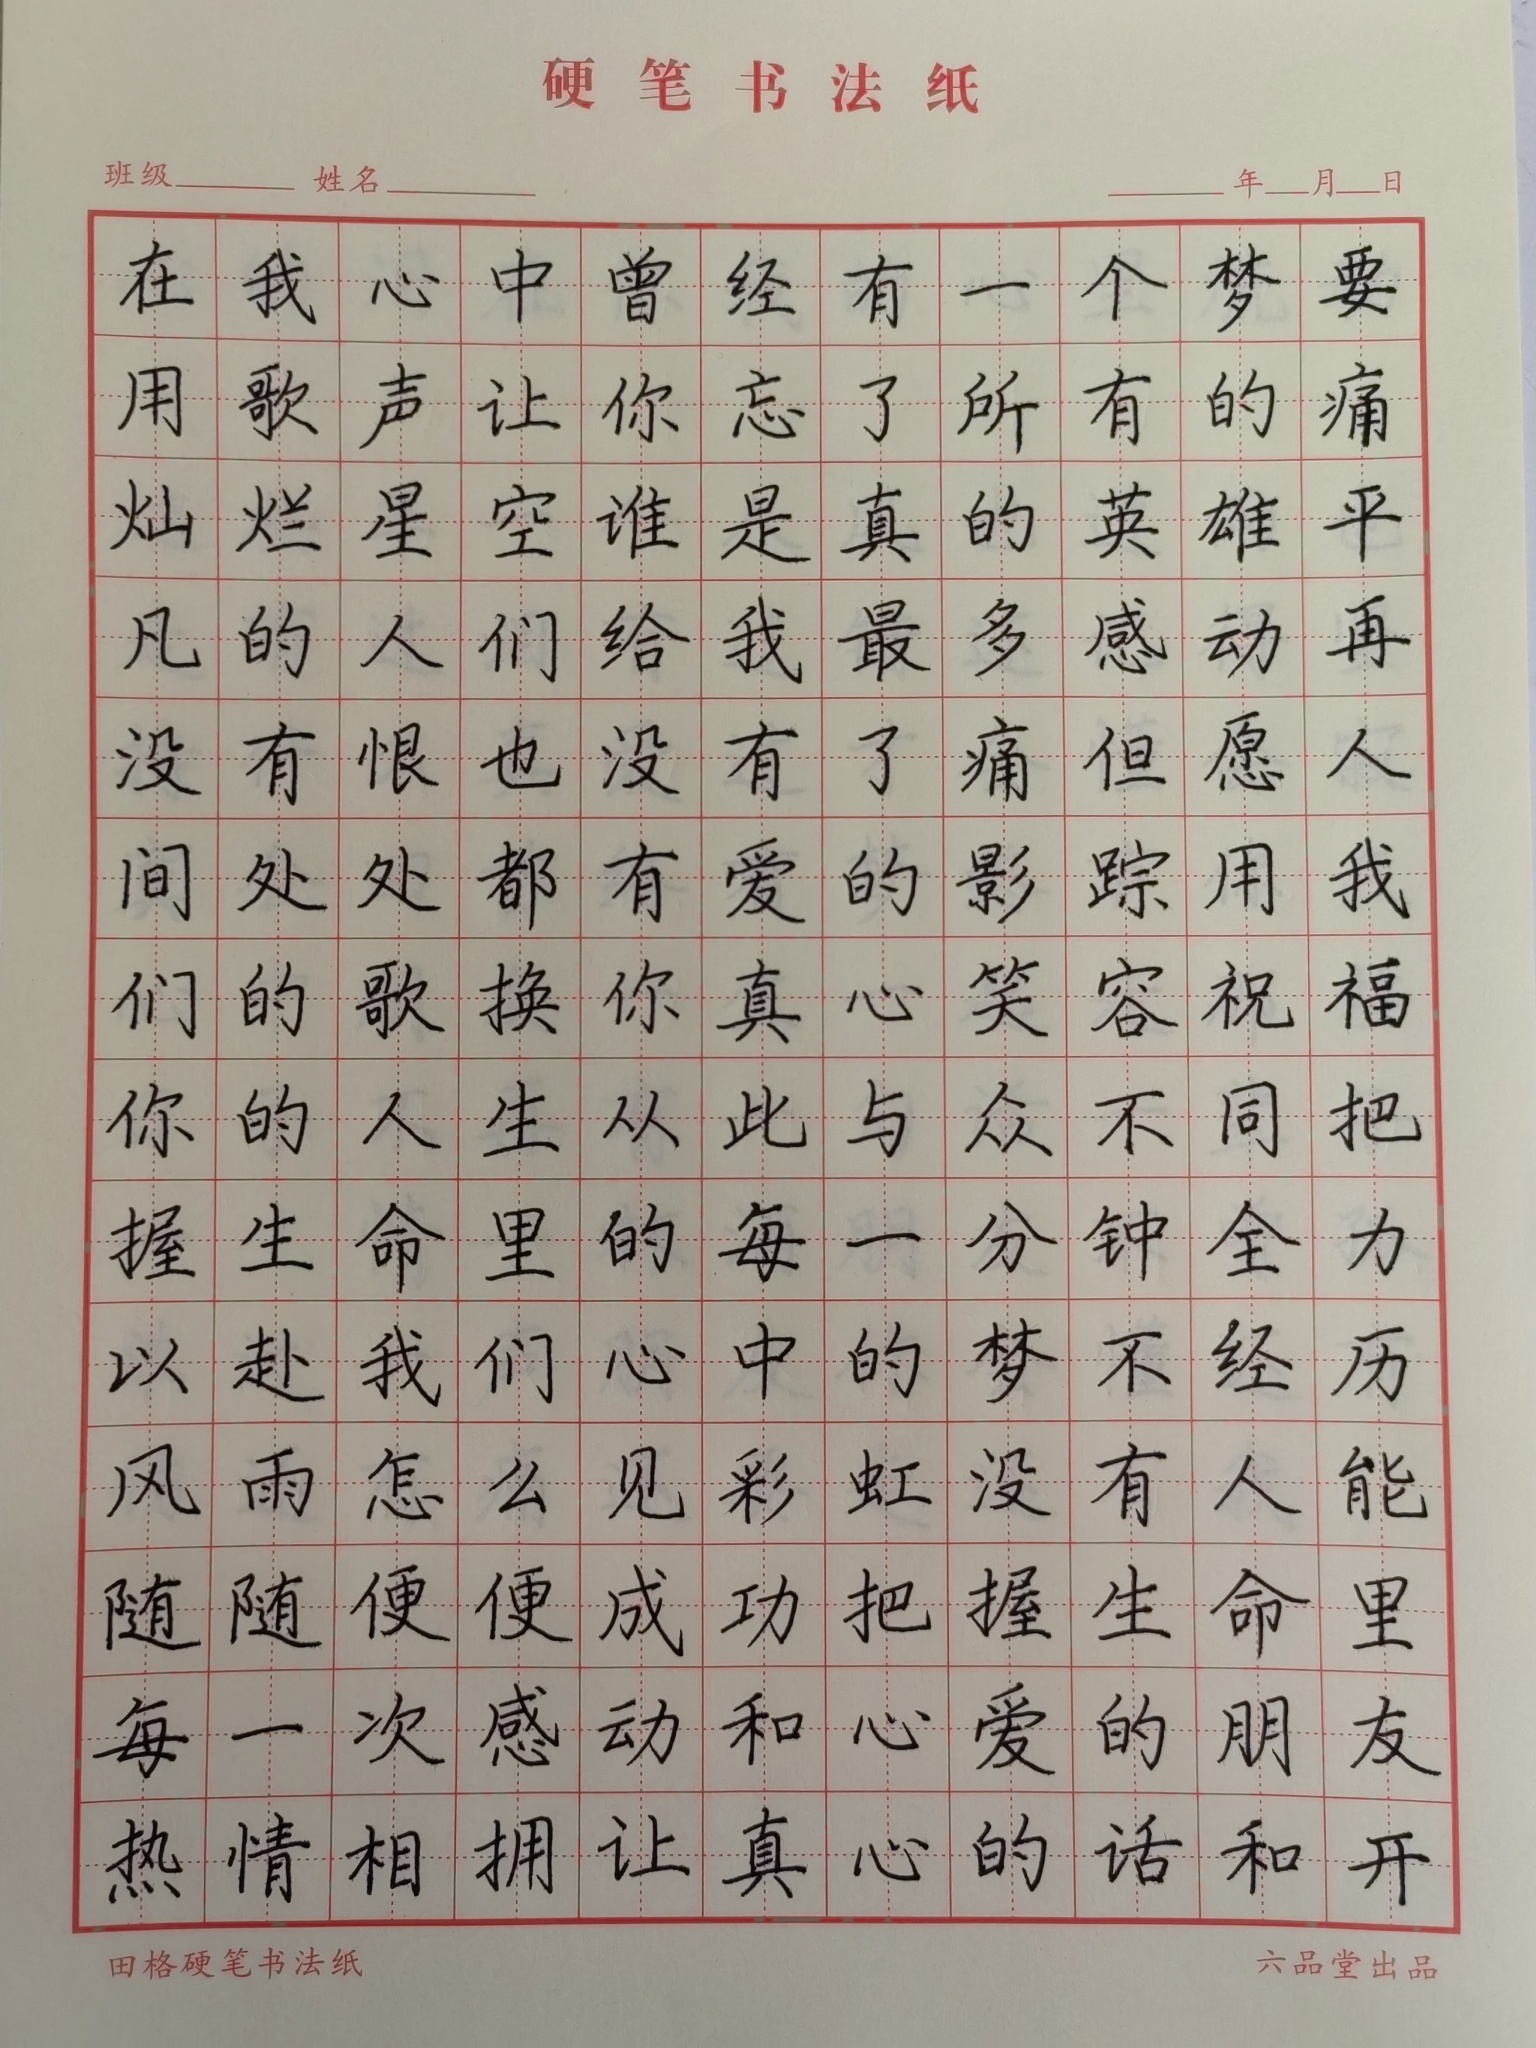 硬笔书法纸
班级 姓名 年 月 日
在我心中曾经有一个梦要
用歌声让你忘了所有的痛
灿烂星空谁是真的英雄平
凡的人们给我最多感动再
没有恨也没有了痛但愿人
间处处都有爱的影踪用我
们的歌换你真心笑容祝福
你的人生从此与众不同把
握生命里的每一分钟全力
以赴我们心中的梦不经历
风雨怎么见彩虹没有人能
随随便便成功把握生命里
每一次感动和心爱的朋友
热情相拥让真心的话和开
田格硬笔书法纸 六品堂出品